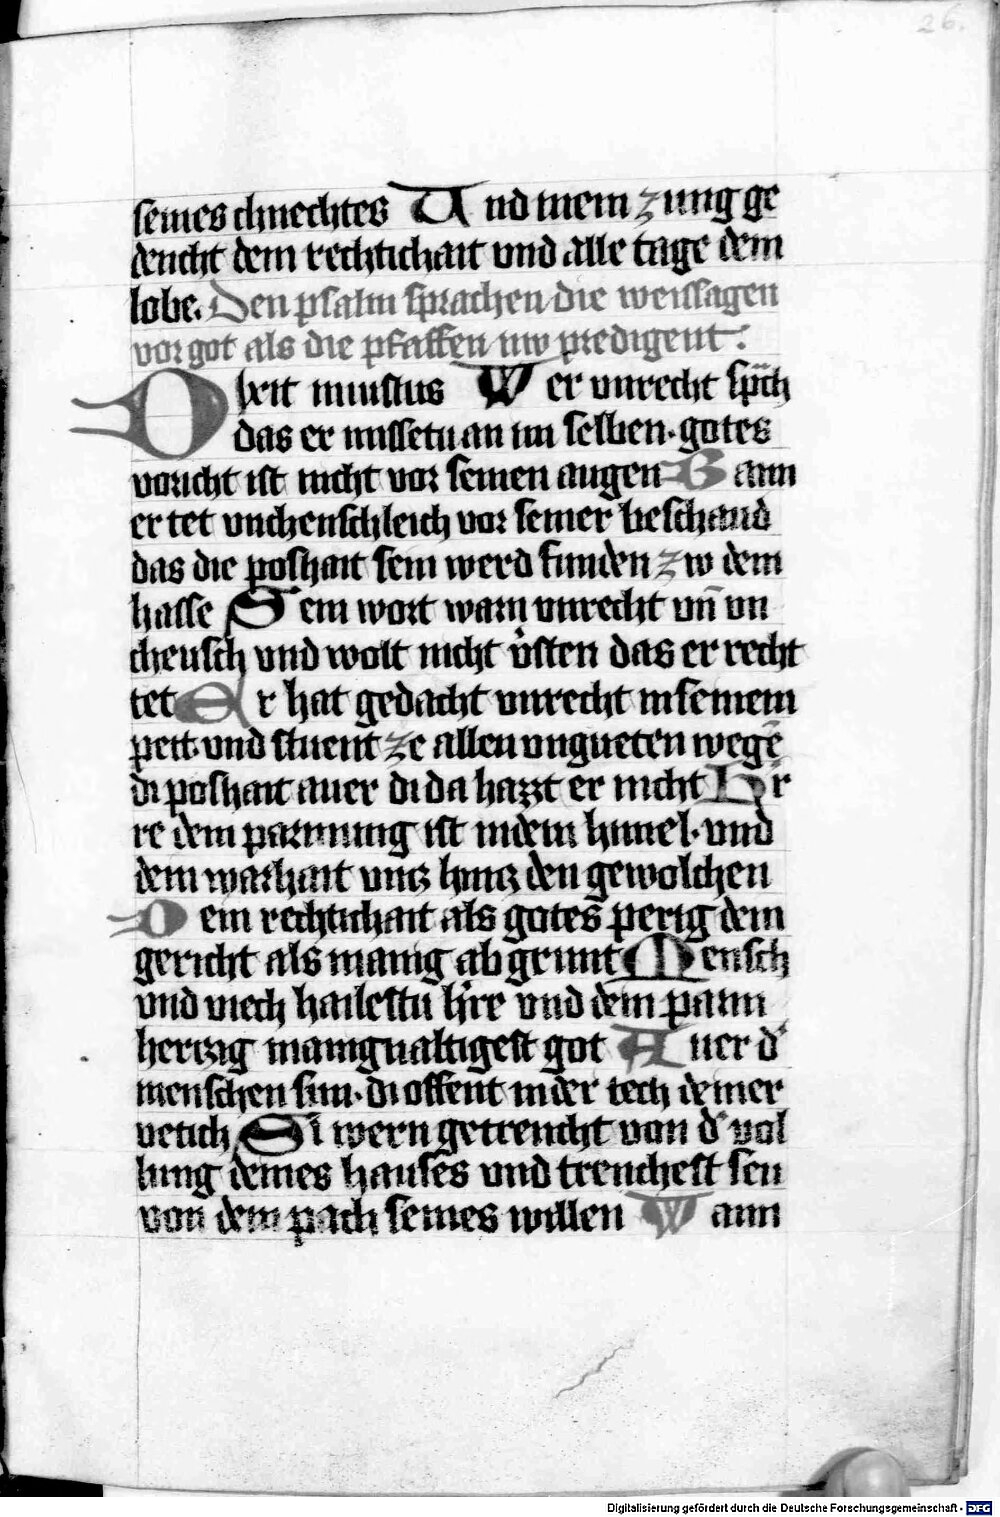 26.
seines chnechtes Und mein zung ge
dencht dein rechtichait vnd alle tage dein
lobe. Den psalm sprachen die weissagen
vor got als die pfaffen nw predigent:
Dixit iniustus Wer vnrecht sp̄ch
das er missetu an im selben. gotes
voricht ist nicht vor seinen augen Wann
er tet vnchenschleich vor seiner beschaud
das die poshait sein werd funden zw dem
hasse Sein wort warn vnrecht vn̄ vn
cheusch vnd wolt nicht v̓sten das er recht
tet Er hat gedacht vnrecht in seinem
pett. vnd stuent ze allen vngueten wegē
di poshait auer di da hazzt er nicht Her
re dein parmung ist in dem himel. vnd
dein warhait vntz hintz den gewolchen
Dein rechtichait als gotes perig dein
gericht als manig abgrunt Mensch
vnd viech hailestu h̓re vnd dein parm
hertzig manigualtigest got Auer d̓
menschen sun. di offent in der tech deiner
vetich Si wern getrencht von d̓ vol
lung deines hauses vnd trenchest seu
von dem pach seines willen Wann
Digitalisierung gefördert durch die Deutsche Forschungsgemeinschaft - DFG